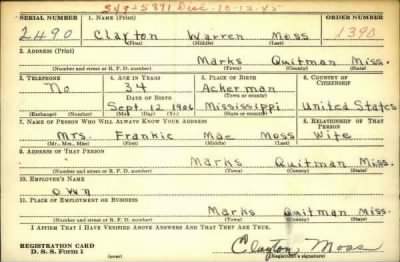 549-5891 Disc. 10-12-45
SERIAL NUMBER 1. NAME (Print) ORDER NUMBER
2490 Clayton Warren Moss 1390
(First) (Middle) (Last)
2. ADDRESS (Print)
Marks Quitman Miss.
(Number and street or R. F. D. number) (Town) (County) (State)
3. TELEPHONE 4. AGE IN YEARS 5. PLACE OF BIRTH 6. COUNTRY OF CITIZENSHIP
No 34 Ackerman
DATE OF BIRTH (Town or county)
Sept. 12 1906 Mississippi United States
(Exchange) (Number) (Mo.) (Day) (Yr.) (State or country)
7. NAME OF PERSON WHO WILL ALWAYS KNOW YOUR ADDRESS 8. RELATIONSHIP OF THAT PERSON
Mrs. Frankie Mae Moss Wife
(Mr., Mrs., Miss) (First) (Middle) (Last)
9. ADDRESS OF THAT PERSON
Marks Quitman Miss.
(Number and street or R. F. D. number) (Town) (County) (State)
10. EMPLOYER'S NAME
own
11. PLACE OF EMPLOYMENT OR BUSINESS
Marks Quitman Miss.
(Number and street or R. F. D. number) (Town) (County) (State)
I AFFIRM THAT I HAVE VERIFIED ABOVE ANSWERS AND THAT THEY ARE TRUE.
REGISTRATION CARD
D. S. S. Form 1 (over) Clayton Moss
(Registrant's signature)